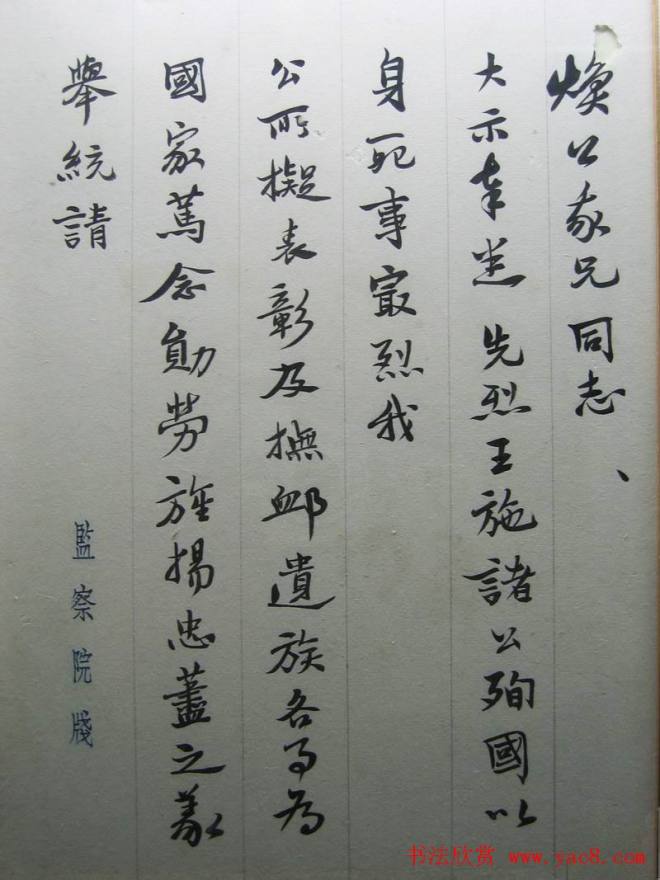 煥公我兄同志、
大示奉悉先烈王施諸公殉國以
身死事最烈我
公所擬表彰及撫卹遺族各事為
國家篤念勛勞旌揚忠藎之義
舉統請
監察院牋
书法欣赏 www.yac8.com